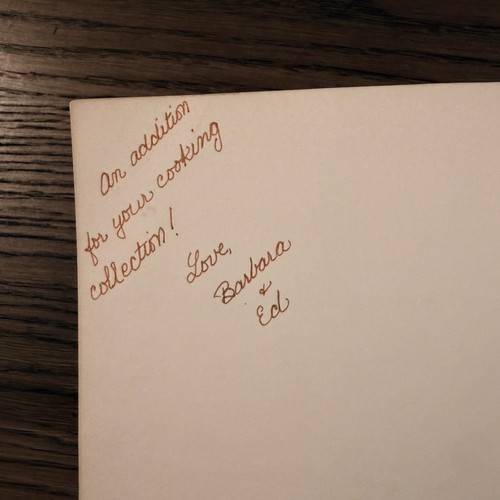 An addition
for your cooking
collection!
Love,
Barbara
&
Ed